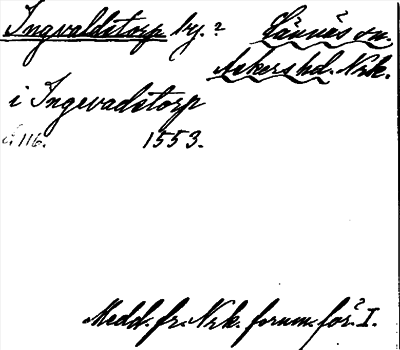 Ingvaldstorp by.? Lännäs sn.
Askers hd. Nrk.
i Ingevadstorp
116. 1553.
Medd. fr. Nrk. fornm. för. I.